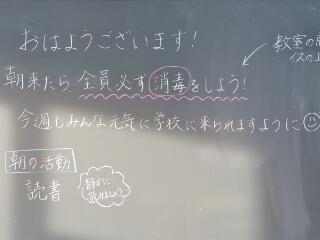 おはようございます!
教室の
イスの上
朝来たら 全員必ず消毒をしよう!
今週もみんな元気に学校に来られますように
朝の活動
読書
静かに